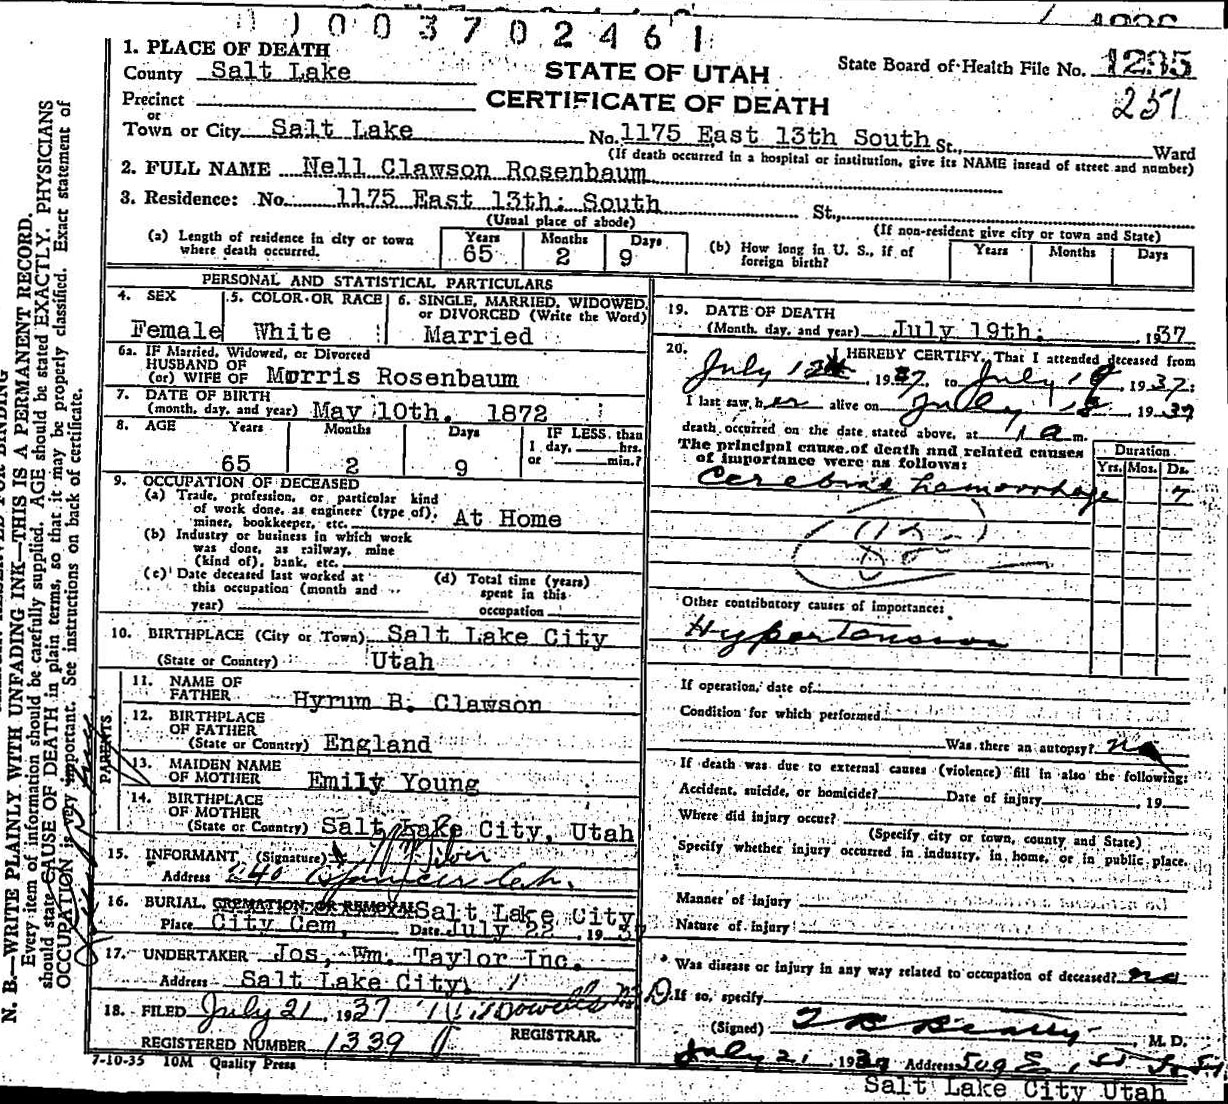 0 0 0 3 7 0 2 4 6 1
1. PLACE OF DEATH
County Salt Lake
STATE OF UTAH
State Board of Health File No. 1295
Precinct
CERTIFICATE OF DEATH
251
or
Town or City Salt Lake No. 1175 East 13th South St., Ward
(If death occurred in a hospital or institution, give its NAME insead of street and number)
2. FULL NAME Nell Clawson Rosenbaum
3. Residence: No. 1175 East 13th: South St.,
(Usual place of abode) (If non-resident give city or town and State)
(a) Length of residence in city or town where death occurred. Years 65 Months 2 Days 9
(b) How long in U. S., if of foreign birth? Years Months Days
PERSONAL AND STATISTICAL PARTICULARS
4. SEX 5. COLOR OR RACE 6. SINGLE, MARRIED, WIDOWED, or DIVORCED (Write the Word)
Female White Married
6a. IF Married, Widowed, or Divorced
HUSBAND OF
(or) WIFE OF Morris Rosenbaum
7. DATE OF BIRTH
(month, day, and year) May 10th. 1872
8. AGE Years Months Days IF LESS than
1 day, hrs.
or min.?
65 2 9
9. OCCUPATION OF DECEASED
(a) Trade, profession, or particular kind
of work done, as engineer (type of),
miner, bookkeeper, etc. At Home
(b) Industry or business in which work
was done, as railway, mine
(kind of), bank, etc.
(c) Date deceased last worked at
this occupation (month and
year)
(d) Total time (years)
spent in this
occupation
10. BIRTHPLACE (City or Town) Salt Lake City
(State or Country) Utah
PARENTS
11. NAME OF
FATHER Hyrum B. Clawson
12. BIRTHPLACE
OF FATHER
(State or Country) England
13. MAIDEN NAME
OF MOTHER Emily Young
14. BIRTHPLACE
OF MOTHER
(State or Country) Salt Lake City, Utah
15. INFORMANT (Signature)
Address
16. BURIAL, CREMATION, OR REMOVAL Salt Lake City
Place City Cem, Date July 22, 1937
17. UNDERTAKER Jos, Wm. Taylor Inc.
Address Salt Lake City,
18. FILED July 21, 1937
REGISTRAR.
REGISTERED NUMBER 1339
7-10-35 10M Quality Press
19. DATE OF DEATH
(Month, day, and year) July 19th: , 1937
20. I HEREBY CERTIFY, That I attended deceased from
July 12 1937, to July 19, 1937;
I last saw her alive on July 18 1937
death occurred on the date stated above, at 1 a m.
The principal cause of death and related causes
of importance were as follows:
Duration
Yrs. Mos. Ds.
Cerebral hemorrhage 7
82
Other contributory causes of importance:
Hypertension
If operation, date of
Condition for which performed
Was there an autopsy? no
If death was due to external causes (violence) fill in also the following:
Accident, suicide, or homicide? Date of injury , 19
Where did injury occur?
(Specify city or town, county and State)
Specify whether injury occurred in industry, in home, or in public place.
Manner of injury
Nature of injury
Was disease or injury in any way related to occupation of deceased? no
If so, specify
(Signed) T B Beatty M. D.
July 21, 1937 Address 509 E,
Salt Lake City Utah
N. B.—WRITE PLAINLY WITH UNFADING INK—THIS IS A PERMANENT RECORD.
Every item of information should be carefully supplied. AGE should be stated EXACTLY. PHYSICIANS
should state CAUSE OF DEATH in plain terms, so that it may be properly classified. Exact statement of
OCCUPATION is very important. See instructions on back of certificate.